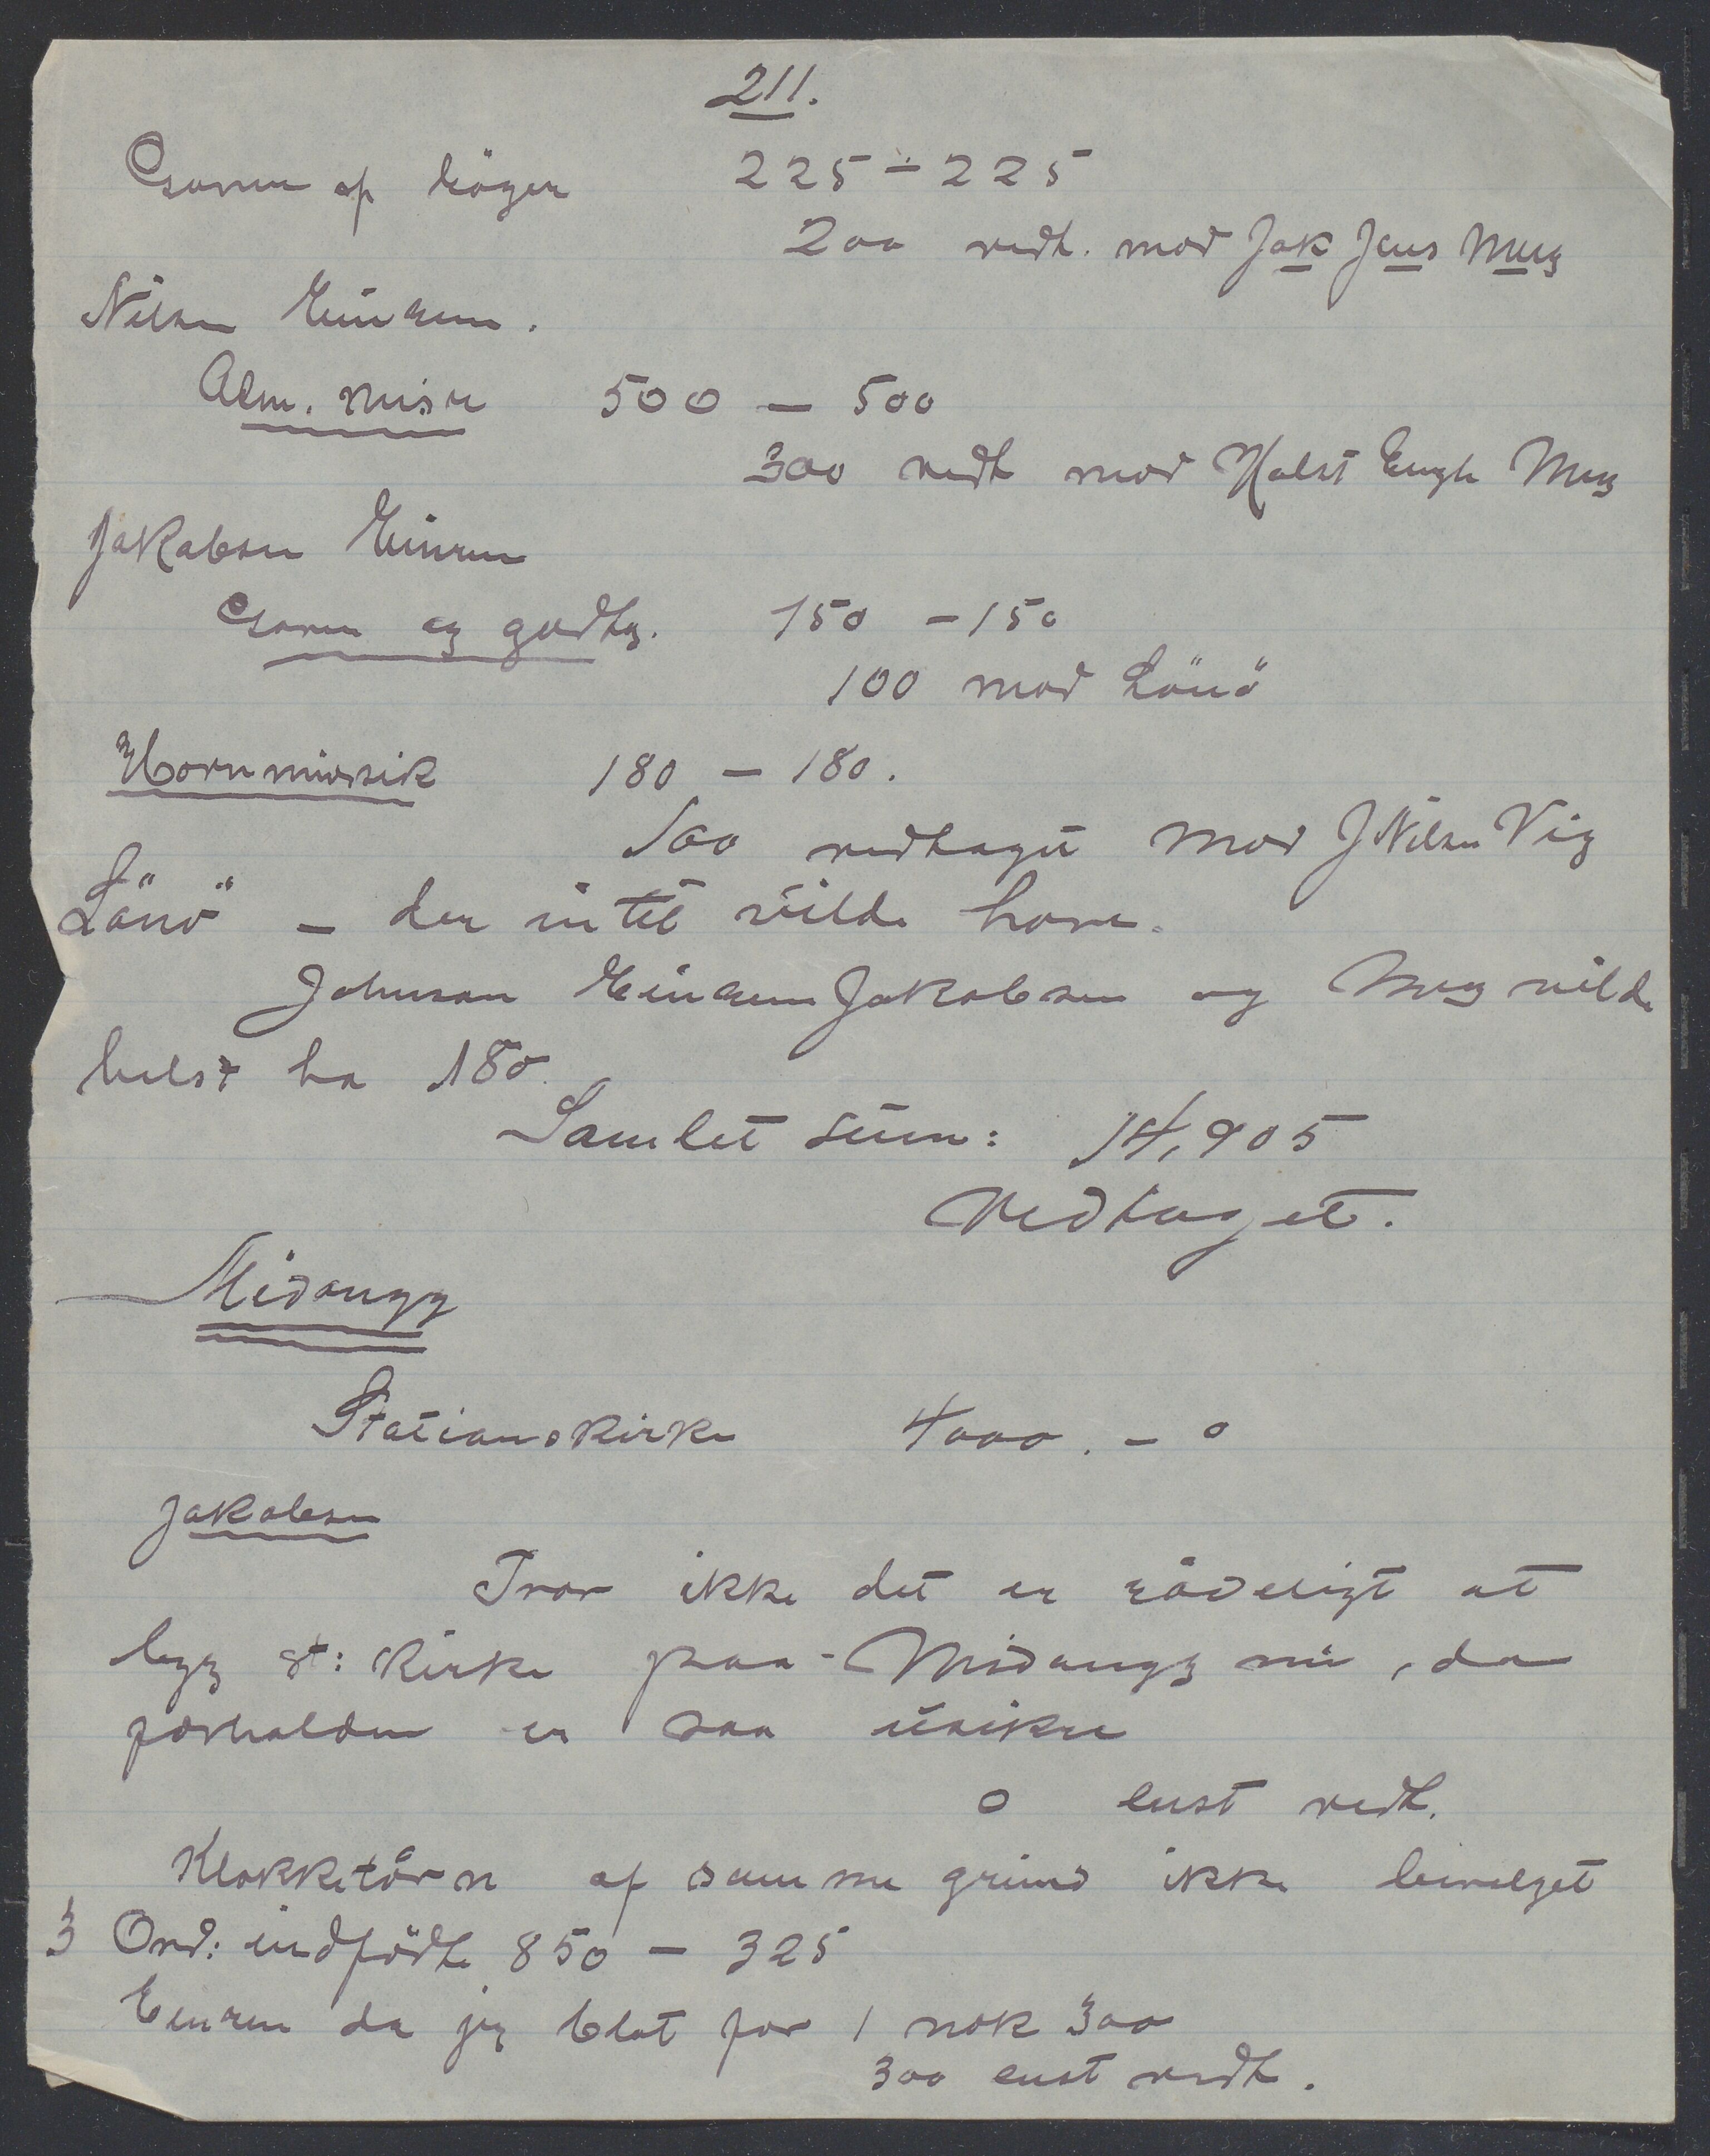 211.
225 - 225
200 vedt. mod Jak Jens Meeg
Nilsen Einrem.
Alm. misn 500 - 500
300 vedt mod Halst Engh Meeg
Jakobsen Einrem
og godtg. 150 - 150
100 mod Lönö
Hornmusik 180 - 180.
100 vedtaget mod J Nilsen Vig
Lönö - der intet vilde have.
Johnson Einrem Jakobsen og Meeg vilde
helst ha 180.
Samlet sum: 14,905
Vedtaget.
Midongy
Stationskirke 4000. - 0
Jakobsen
Tror ikke det er rådeligt at
legge st: Kirke paa Midongy nu, da
forholdene er saa usikre
0 enst vedt.
Klokketårn af samme grund ikke bevilget
3 Ord: indfödte 850 - 325
Einrem da jeg blot for 1 nok 300
300 enst vedt.